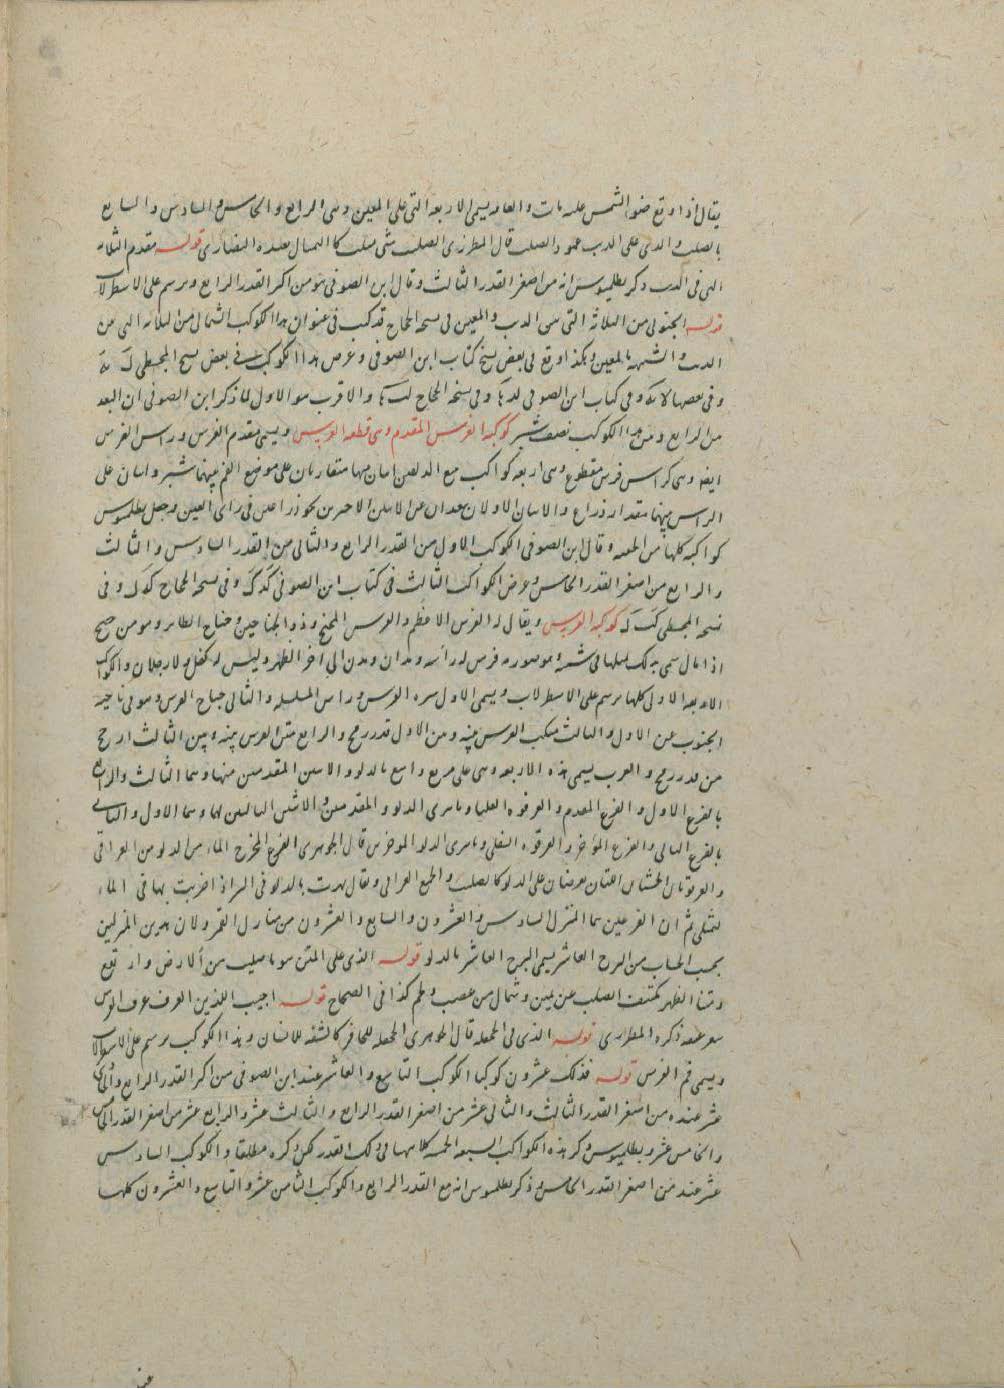 يقال اذا وقع ضوء الشمس عليه مات والعامه يسمى الاربعه التى على المعين وهى الرابع والخامس والسادس والسابع
بالصليب والدى على الدنب عمود الصليب قال المطرزى الصليب شئ مثلث كالتمثال يعبده النصارى قوله مقدم الثلثه
التى فى الدنب ذكر بطلميوس انه من اصغر القدر الثالث وقال ابن الصوفى هو من اكبر القدر الرابع ويرسم على الاسطرلاب
قوله الجنوبى من الثلاثة التى بين الدنب والمعين فى نسخه الحجاج قد كتب فى عنوان هذا الكوكب الشمالى من الثلاثه التى بين
الدنب والشبيه بالمعين وهكذا وقع فى بعض نسخ كتاب ابن الصوفى وعرض هذا الكوكب فى بعض نسخ المجسطى
وفى بعضها وفى كتاب ابن الصوفى وفى نسخه الحجاج والاقرب هو الاول لما ذكر ابن الصوفى ان البعد
من الرابع ومن هذا الكوكب نصف شبر كوكبة الفرس المقدم وهى قطعه الفرس ويسمى مقدم الفرس وراس الفرس
ايضا وهى كراس فرس مقطوع وهى اربعه كواكب مع الدلفين اثنان منها متقاربان على موضع الفم بينهما شبر واثنان على
الراس بينهما مقدار ذراع والاثنان الاولان يبعدان عن الاثنين الاخرين نحو ذراعين فى راى العين وجعل بطلميوس
كواكبه كلها من وقال ابن الصوفى الكوكب الاول من القدر الرابع والثانى من القدر السادس والثالث
والرابع من اصغر القدر الخامس وعرض الكواكب الثالث فى كتاب ابن الصوفى وفى نسخه الحجاج وفى
نسخه المجسطى كوكبة الفرس ويقال له الفرس الاعظم والفرس المجنح وذو الجناحين وجناح الطائر وهو من جنح
اذا مال سمى به لك لميلها فى شقيه وهو صوره فرس له راس ويدان وبدن الى اخر الظهر وليس له كفل ولا رجلان والكواكب
الاربعه الاولى كلها يرسم على الاسطرلاب ويسمى الاول سره الفرس وراس المسلسله والثانى جناح الفرس وهو فى ناحيه
الجنوب عن الاول والثالث منكب الفرس بينه ومن الاول قدر رمح والرابع متن الفرس بينه وبين الثالث ارجح
من قدر رمح والعرب يسمى هذه الاربعه وهى على مربع واسع بالدلو والاثنين المقدمين منها وهما الثالث والرابع
بالفرغ الاول والفرغ المقدم والعرقوه العليا وناهزى الدلو المقدمين والاثنين التاليين لهما وهما الاول والثانى
بالفرغ الثانى والفرغ المؤخر والعرقوه السفلى وناهزى الدلو الموخرين قال الجوهرى الفرغ مخرج الماء من الدلو من العراقى
والعرقوتان الخشبتان اللتان تعرضان على الدلو كالصليب والجمع العراقى ويقال نهزت بالدلو فى البئر اذا ضربت بها فى الماء
لتمتلى ثم ان الفرغين هما المنزل السادس والعشرون والسابع والعشرون من منازل القمر ولان هذين المنزلين
بحسب الحساب من البرج العاشر يسمى البرج العاشر بالدلو قوله الذى على المتن هو ما صلب من الارض وارتفع
ومتنا الظهر مكتنفا الصلب عن يمين وشمال من عصب ولحم كذا فى الصحاح قوله اجيب اللذين العرف عرف الفرس
شعر عنقه ذكره المطرزى قوله الذى فى الجحفله قال الجوهرى الجحفله للحافر كالشفه للانسان وهذا الكوكب يرسم على الاسطرلاب
ويسمى فم الفرس قوله فذلك عشرون كوكبا الكوكب التاسع والعاشر عند ابن الصوفى من اكبر القدر الرابع والحادى
عشر عنده من اصغر القدر الثالث والثانى عشر من اصغر القدر الرابع والثالث عشر والرابع عشر من اصغر القدر الخامس
والخامس عشر وبطلميوس ذكر هذه الكواكب السبعه كلا منها فى ذلك القدر لكن ذكره مطلقا والكوكب السادس
عشر عنده من اصغر القدر الخامس وذكر بطلميوس انه مع القدر الرابع والكوكب الثامن عشر والتاسع والعشرون كلها